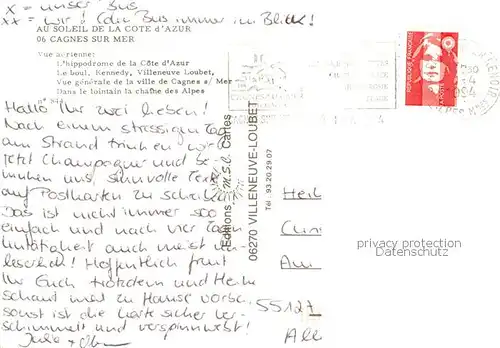 x = unser Bus
xx = wir! (den Bus immer im Blick!
AU SOLEIL DE LA COTE d'AZUR
06 CAGNES SUR MER
Vue aérienne:
L'hippodrome de la Côte d'Azur
Le boul. Kennedy, Villeneuve Loubet,
Vue générale de la ville de Cagnes s/Mer
Dans le lointain la chaîne des Alpes
Hallo Ihr zwei Lieben!
Nach einem stressigen Tag
am Strand trinken wir
jetzt Champagner und be-
mühen uns, sinnvolle Texte
auf Postkarten zu schreiben.
Das ist nicht immer soo
einfach und nach vier Tagen
Untätigkeit auch meist un-
leserlich! Hoffentlich freut
Ihr Euch trotzdem und
schaut mal zu Hause vorbei
sonst ist die Karte sicher ver-
schimmelt und verspinnwebt!
Editions M.S.C. Cartes
06270 VILLENEUVE-LOUBET
Tél. 93.20.29.07
REPUBLIQUE FRANÇAISE
55127
privacy protection
VDMedien24.de